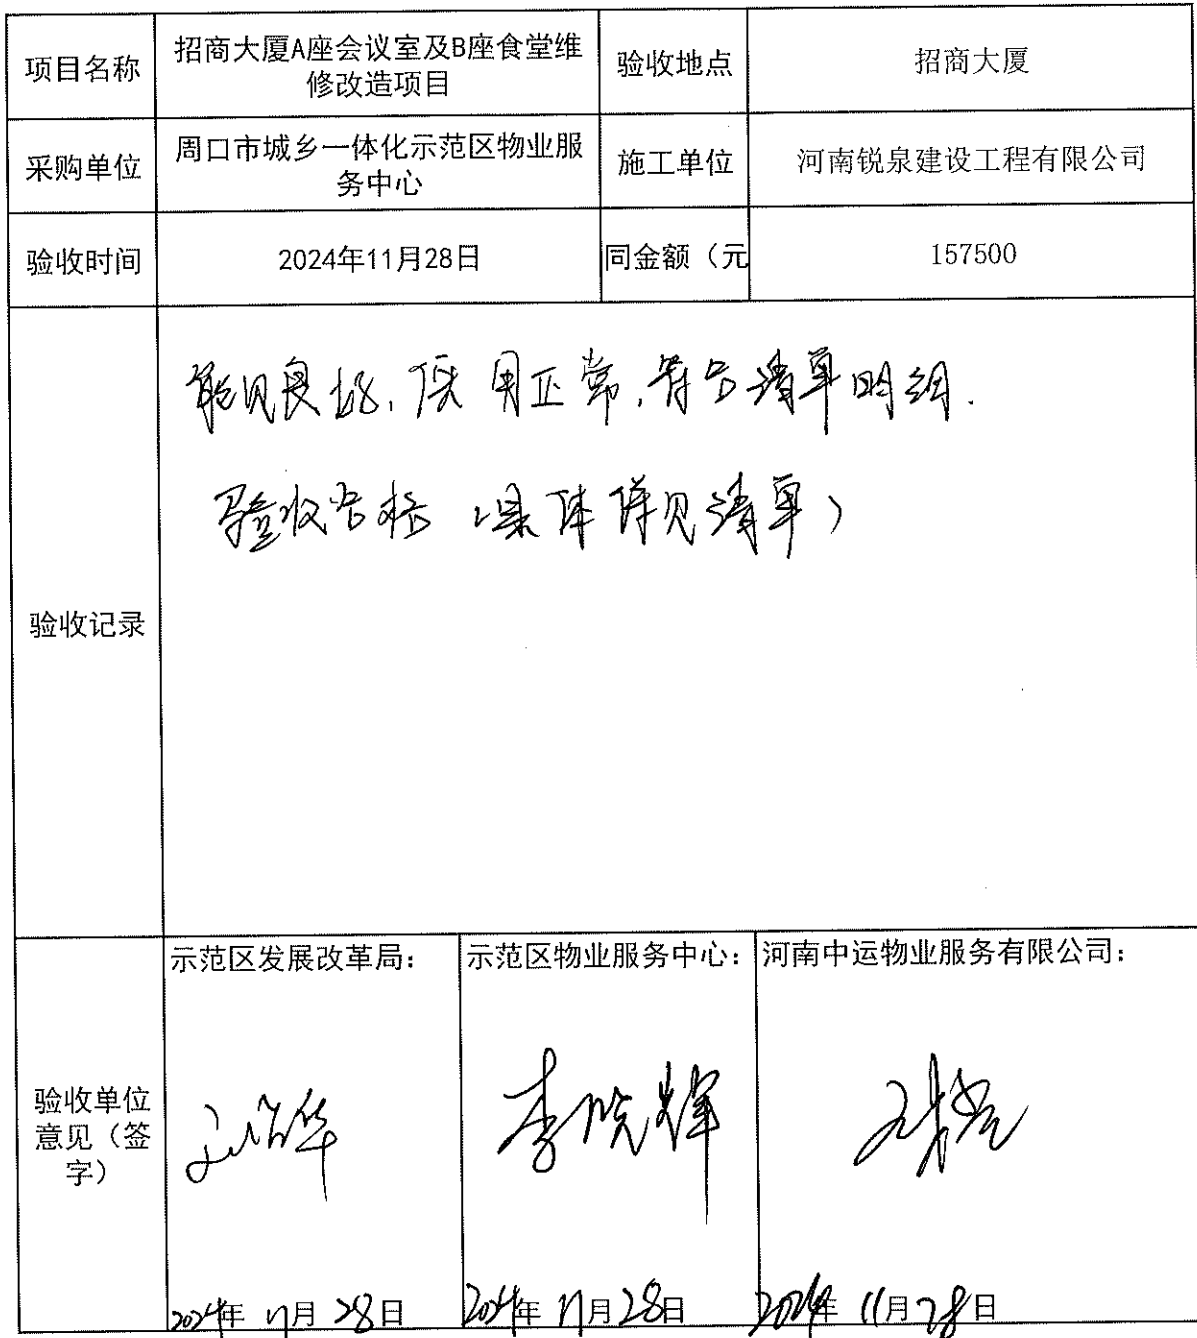 项目名称
招商大厦A座会议室及B座食堂维
修改造项目
验收地点
招商大厦
采购单位
周口市城乡一体化示范区物业服
务中心
施工单位
河南锐泉建设工程有限公司
验收时间
2024年11月28日
同金额（元
157500
验收记录
良好,使用正常,符合清单明细.
验收合格(具体详见清单)
验收单位
意见（签
字）
示范区发展改革局：
2024年11月28日
示范区物业服务中心：
李晓辉
2024年11月28日
河南中运物业服务有限公司：
2024年11月28日